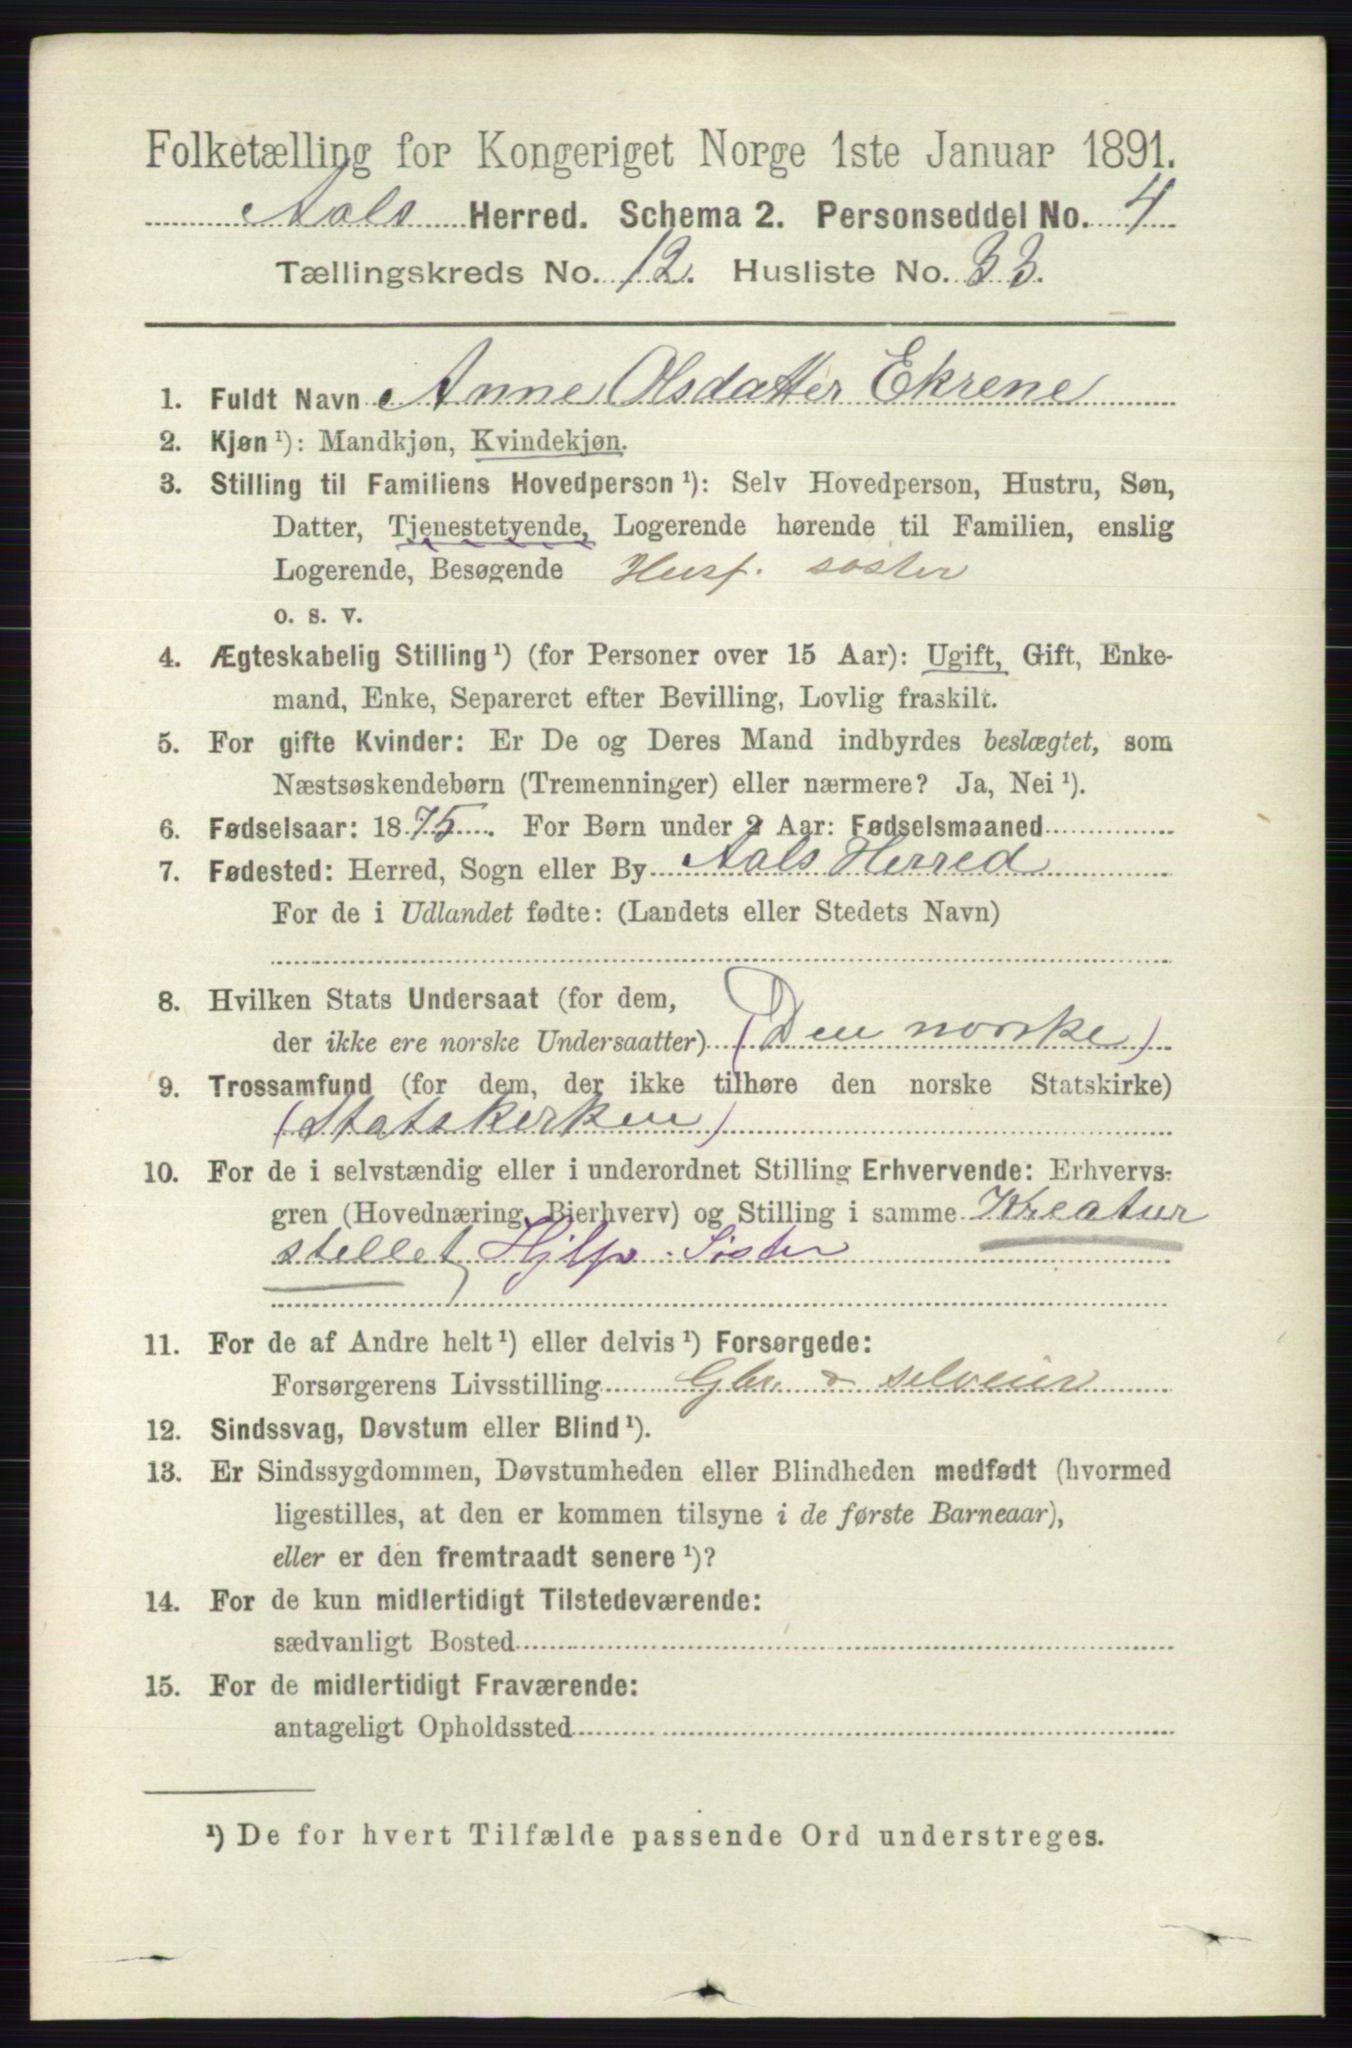 Folketælling for Kongeriget Norge 1ste Januar 1891.
Aals Herred. Schema 2. Personseddel No. 4
Tællingskreds No. 12. Husliste No. 33.
1. Fuldt Navn Anne Olsdatter Ekrene
2. Kjøn ¹): Mandkjøn, Kvindekjøn.
3. Stilling til Familiens Hovedperson ¹): Selv Hovedperson, Hustru, Søn,
Datter, Tjenestetyende, Logerende hørende til Familien, enslig
Logerende, Besøgende Husf. søster
o. s. v.
4. Ægteskabelig Stilling ¹) (for Personer over 15 Aar): Ugift, Gift, Enke-
mand, Enke, Separeret efter Bevilling, Lovlig fraskilt.
5. For gifte Kvinder: Er De og Deres Mand indbyrdes beslægtet, som
Næstsøskendebørn (Tremenninger) eller nærmere? Ja, Nei ¹).
6. Fødselsaar: 1875. For Børn under 2 Aar: Fødselsmaaned
7. Fødested: Herred, Sogn eller By Aals Herred
For de i Udlandet fødte: (Landets eller Stedets Navn)
8. Hvilken Stats Undersaat (for dem,
der ikke ere norske Undersaatter) (Den norske)
9. Trossamfund (for dem, der ikke tilhøre den norske Statskirke)
(Statskerken)
10. For de i selvstændig eller i underordnet Stilling Erhvervende: Erhvervs-
gren (Hovednæring, Bierhverv) og Stilling i samme Kreatur
stellet, Hjelp. Sister
11. For de af Andre helt ¹) eller delvis ¹) Forsørgede:
Forsørgerens Livsstilling Gbr. & selveier
12. Sindssvag, Døvstum eller Blind ¹).
13. Er Sindssygdommen, Døvstumheden eller Blindheden medfødt (hvormed
ligestilles, at den er kommen tilsyne i de første Barneaar),
eller er den fremtraadt senere ¹)?
14. For de kun midlertidigt Tilstedeværende:
sædvanligt Bosted
15. For de midlertidigt Fraværende:
antageligt Opholdssted
¹) De for hvert Tilfælde passende Ord understreges.